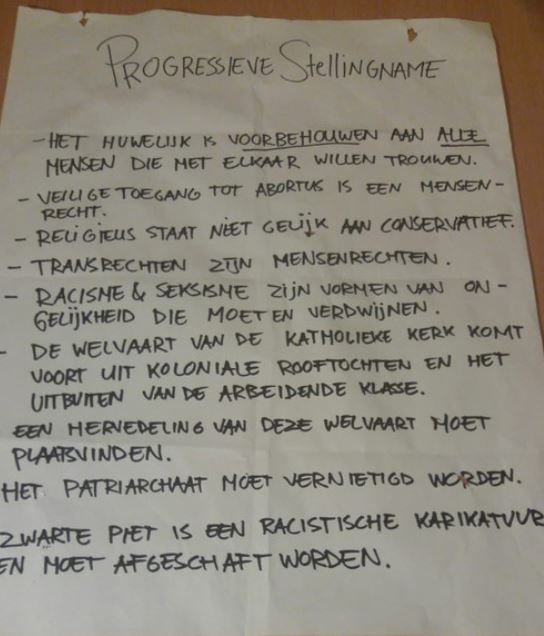 PROGRESSIEVE StellingNAME
- HET HUWELIJK IS VOORBEHOUWEN AAN ALLE
MENSEN DIE MET ELKAAR WILLEN TROUWEN.
- VEILIGE TOEGANG TOT ABORTUS IS EEN MENSEN-
RECHT.
- RELIGIEUS STAAT NIET GELIJK AAN CONSERVATIEF.
- TRANSRECHTEN ZIJN MENSENRECHTEN.
- RACISME & SEKSISME ZIJN VORMEN VAN ON-
GELIJKHEID DIE MOETEN VERDWIJNEN.
- DE WELVAART VAN DE KATHOLIEKE KERK KOMT
VOORT UIT KOLONIALE ROOFTOCHTEN EN HET
UITBUITEN VAN DE ARBEIDENDE KLASSE.
EEN HERVEDELING VAN DEZE WELVAART MOET
PLAATSVINDEN.
HET PATRIARCHAAT MOET VERNIETIGD WORDEN.
ZWARTE PIET IS EEN RACISTISCHE KARIKATUUR
EN MOET AFGESCHAFT WORDEN.